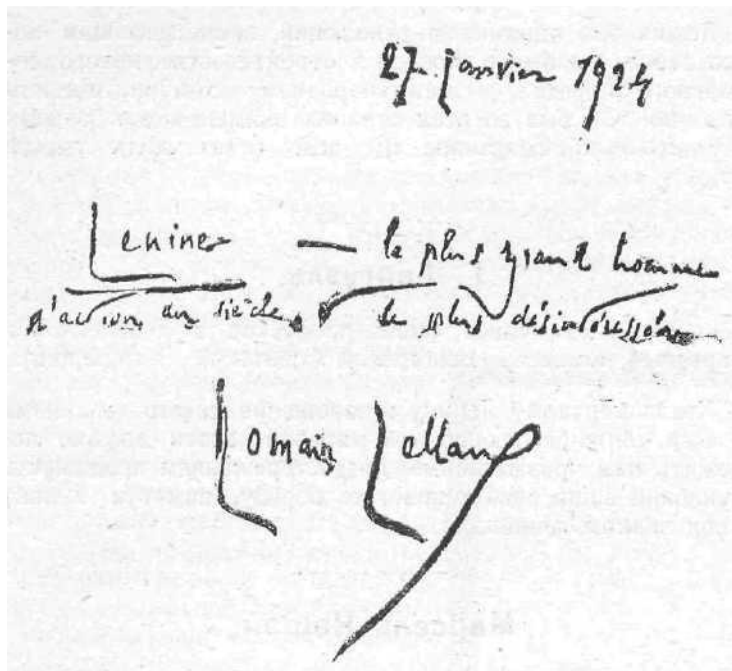 27 janvier 1924
Lenine — le plus grand homme
d'action du siècle et le plus désintéressé
Romain Rolland